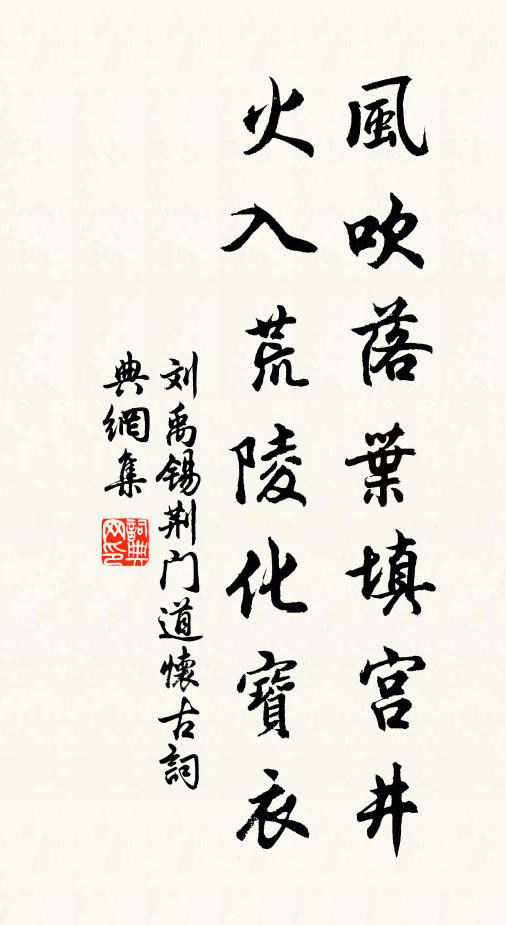 風吹落葉填宫井
火入荒陵化寶衣
刘禹锡荆门道懷古詞
典網集
詞典网印